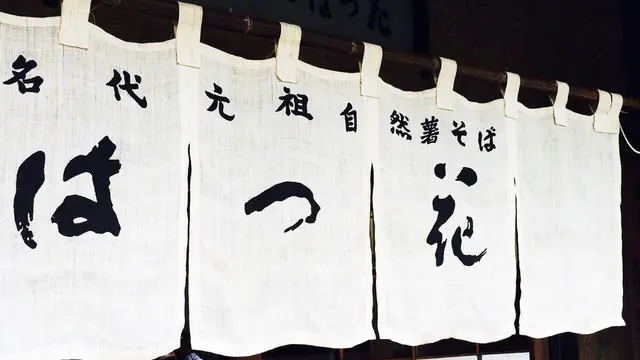 名代元祖自然薯そば
はつ花